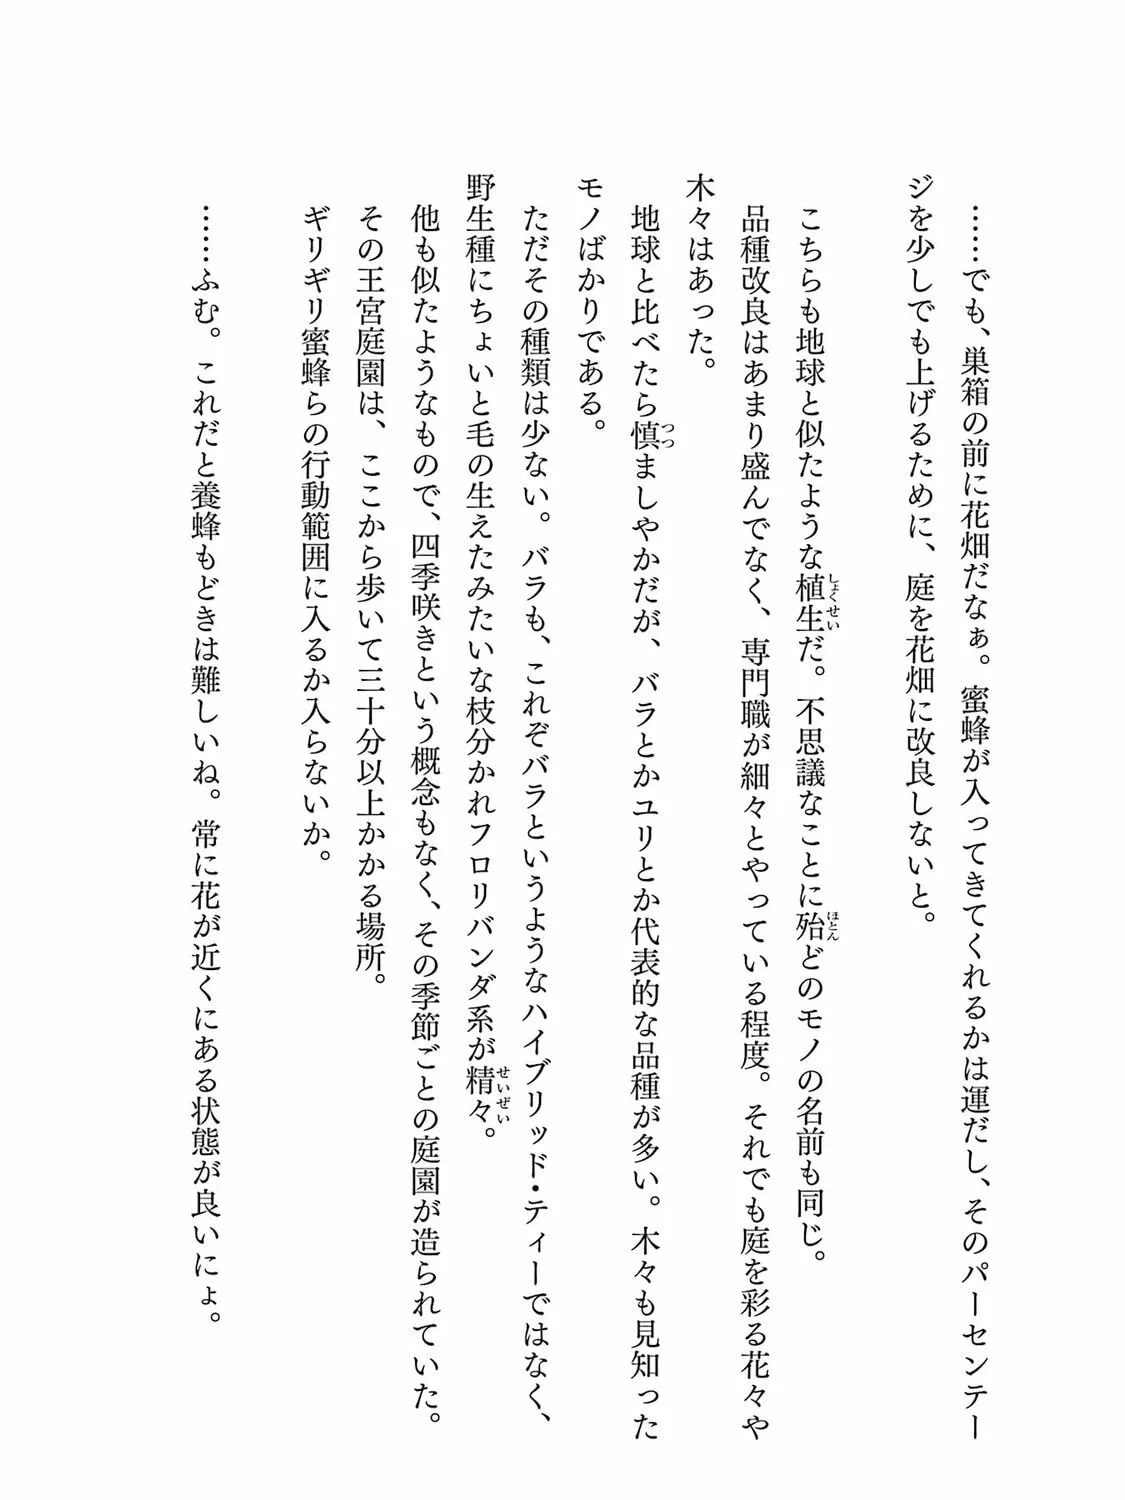 ……でも、巣箱の前に花畑だなぁ。蜜蜂が入ってきてくれるかは運だし、そのパーセンテー
ジを少しでも上げるために、庭を花畑に改良しないと。
こちらも地球と似たような植生だ。不思議なことに殆どのモノの名前も同じ。
品種改良はあまり盛んでなく、専門職が細々とやっている程度。それでも庭を彩る花々や
木々はあった。
地球と比べたら慎ましやかだが、バラとかユリとか代表的な品種が多い。木々も見知った
モノばかりである。
ただその種類は少ない。バラも、これぞバラというようなハイブリッド・ティーではなく、
野生種にちょいと毛の生えたみたいな枝分かれフロリバンダ系が精々。
他も似たようなもので、四季咲きという概念もなく、その季節ごとの庭園が造られていた。
その王宮庭園は、ここから歩いて三十分以上かかる場所。
ギリギリ蜜蜂らの行動範囲に入るか入らないか。
……ふむ。これだと養蜂もどきは難しいね。常に花が近くにある状態が良いにょ。